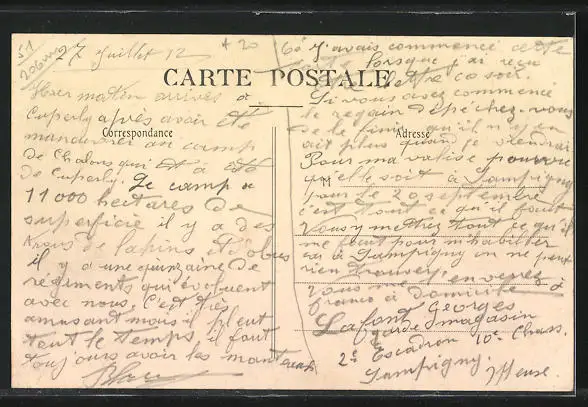 51
206
27 Juillet 12
CARTE POSTALE
Correspondance
Adresse
M
Hier matin arrivés à
Cuperly après avoir été
manœuvrer au camp
de Chalons qui est à côté
de Cuperly. Le camp a
11000 hectares de
superficie il y a des
trous de lapins et d'obus
il y a une quinzaine de
régiments qui évoluent
avec nous. C'est très
amusant mais il pleut
tout le temps il faut
toujours avoir les manteaux
J'avais commencé cette
lorsque j'ai reçu
lettre ce soir.
Si vous avez commencé
le regain dépéchez-vous
de le finir qu'il n'y en
ait plus quand je viendrai
Pour ma valise pourvu
qu'elle soit à Sampigny
pour le 20 septembre
c'est tout ce qu'il faut
Vous y mettrez tout ce qu'il
me faut pour m'habiller
car à Sampigny on ne peut
rien trouver.
Vous me l'enverrez
franco à domicile
Lafont Georges
garde magasin
2e Escadron 10e Chass.
Sampigny Meuse.